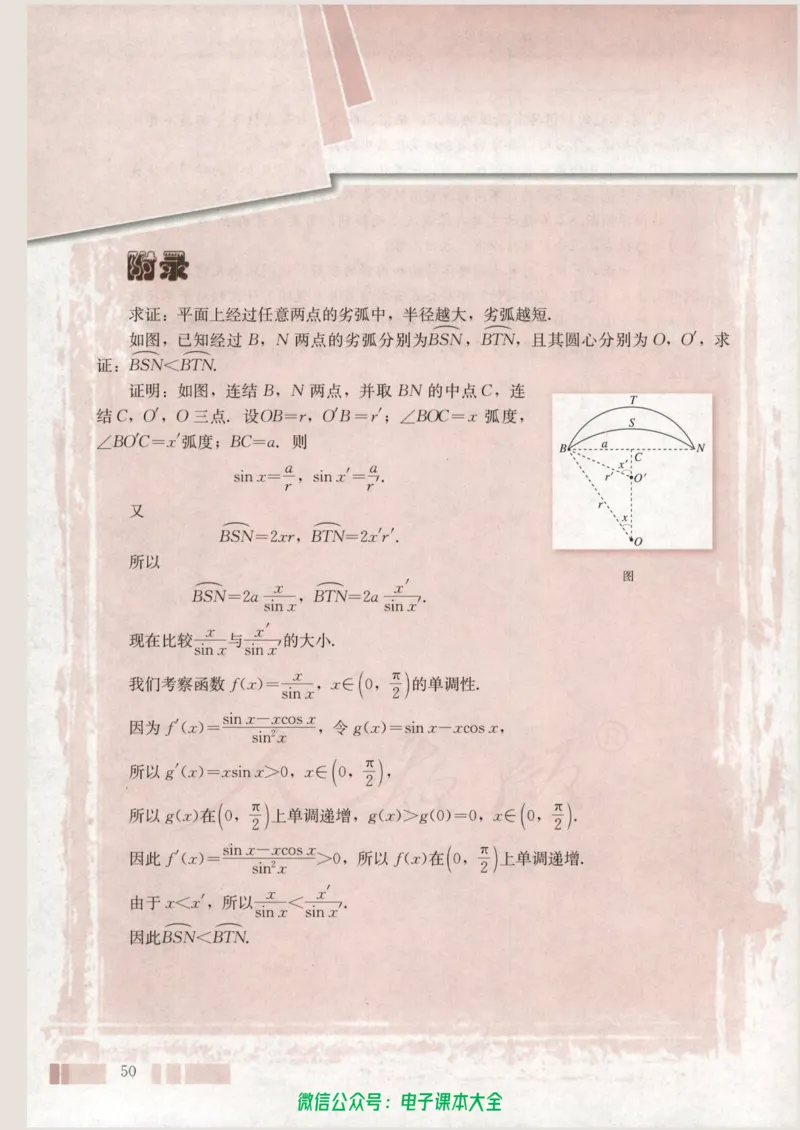 附录
求证：平面上经过任意两点的劣弧中，半径越大，劣弧越短.
如图，已知经过 B，N 两点的劣弧分别为$\overset{\frown}{BSN}$，$\overset{\frown}{BTN}$，且其圆心分别为 O，O′，求
证：$\overset{\frown}{BSN}$<$\overset{\frown}{BTN}$.
证明：如图，连结 B，N 两点，并取 BN 的中点 C，连
结 C，O′，O 三点. 设OB=r，O′B=r′；∠BOC=x 弧度，
∠BO′C=x′弧度；BC=a. 则
$\sin x=\frac{a}{r}$，$\sin x'=\frac{a}{r'}$.
又
$\overset{\frown}{BSN}=2xr$，$\overset{\frown}{BTN}=2x'r'$.
所以
$\overset{\frown}{BSN}=2a\frac{x}{\sin x}$，$\overset{\frown}{BTN}=2a\frac{x'}{\sin x'}$.
现在比较$\frac{x}{\sin x}$与$\frac{x'}{\sin x'}$的大小.
我们考察函数 $f(x)=\frac{x}{\sin x}$，$x∈\left(0，\frac{π}{2}\right)$的单调性.
因为 $f'(x)=\frac{\sin x-x\cos x}{\sin^2 x}$，令 $g(x)=\sin x-x\cos x$，
所以 $g'(x)=x\sin x>0$，$x∈\left(0，\frac{π}{2}\right)$，
所以 $g(x)$在$\left(0，\frac{π}{2}\right)$上单调递增，$g(x)>g(0)=0$，$x∈\left(0，\frac{π}{2}\right)$.
因此 $f'(x)=\frac{\sin x-x\cos x}{\sin^2 x}>0$，所以 $f(x)$在$\left(0，\frac{π}{2}\right)$上单调递增.
由于 $x<x'$，所以$\frac{x}{\sin x}<\frac{x'}{\sin x'}$.
因此$\overset{\frown}{BSN}$<$\overset{\frown}{BTN}$.
T
S
B
a
N
C
x′
r′
O′
r
x
O
图
50
微信公众号：电子课本大全